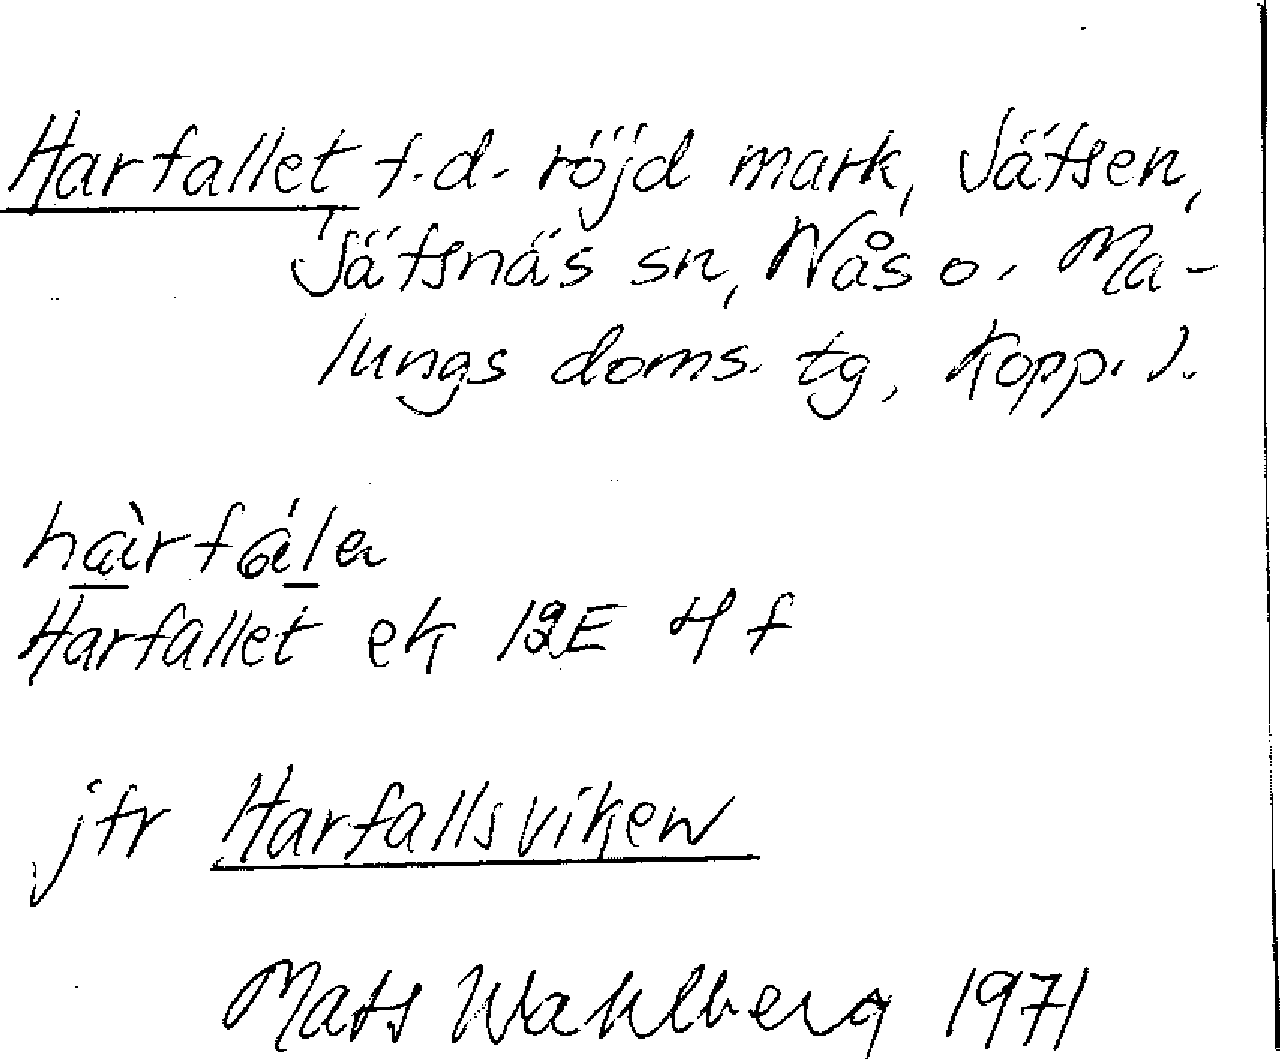 Harfallet f.d. röjd mark, Jätsen,
Jätsnäs sn, Nås o. Ma-
lungs doms. tg, Kopp. l.
hàrfála
Harfallet ek 12E 4 f
jfr Harfallsviken
Mats Wahlberg 1971